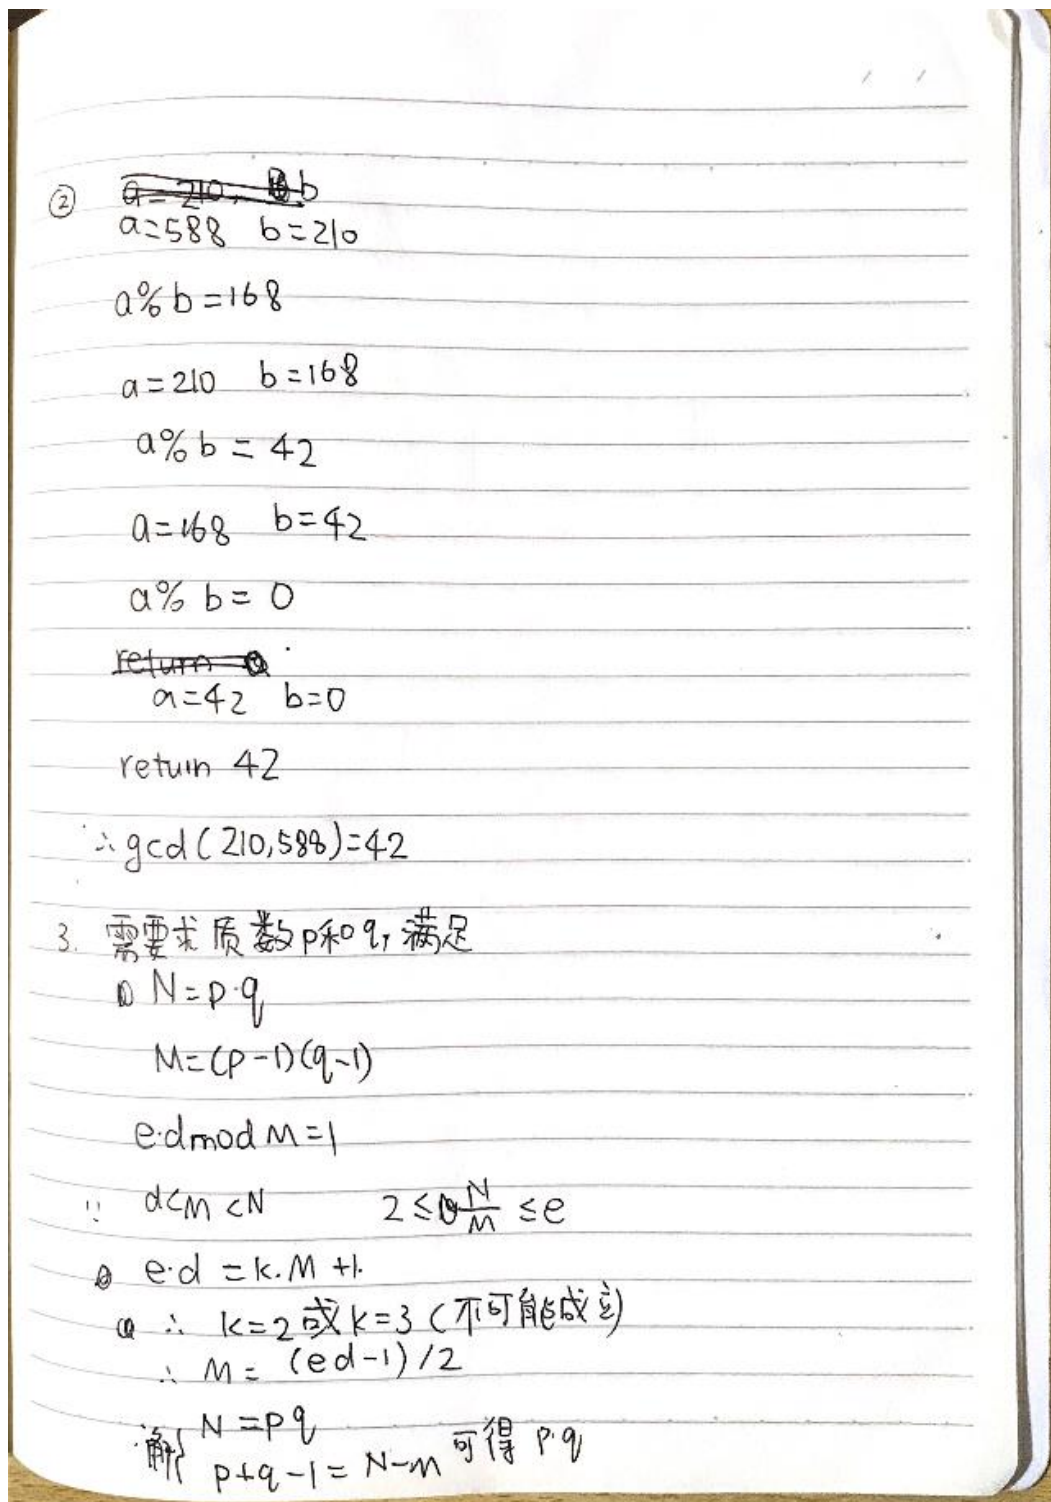 ②
a=588 b=210
a%b=168
a=210 b=168
a%b=42
a=168 b=42
a%b=0
a=42 b=0
return 42
∴gcd(210,588)=42
3. 需要求质数p和q,满足
① N=p·q
M=(p-1)(q-1)
e·d mod M=1
∵ d<M<N 2≤N/M≤e
e·d=k·M+1.
∴ k=2或k=3(不可能成立)
∴ M=(ed-1)/2
解{ N=pq
p+q-1=N-M 可得 p·q